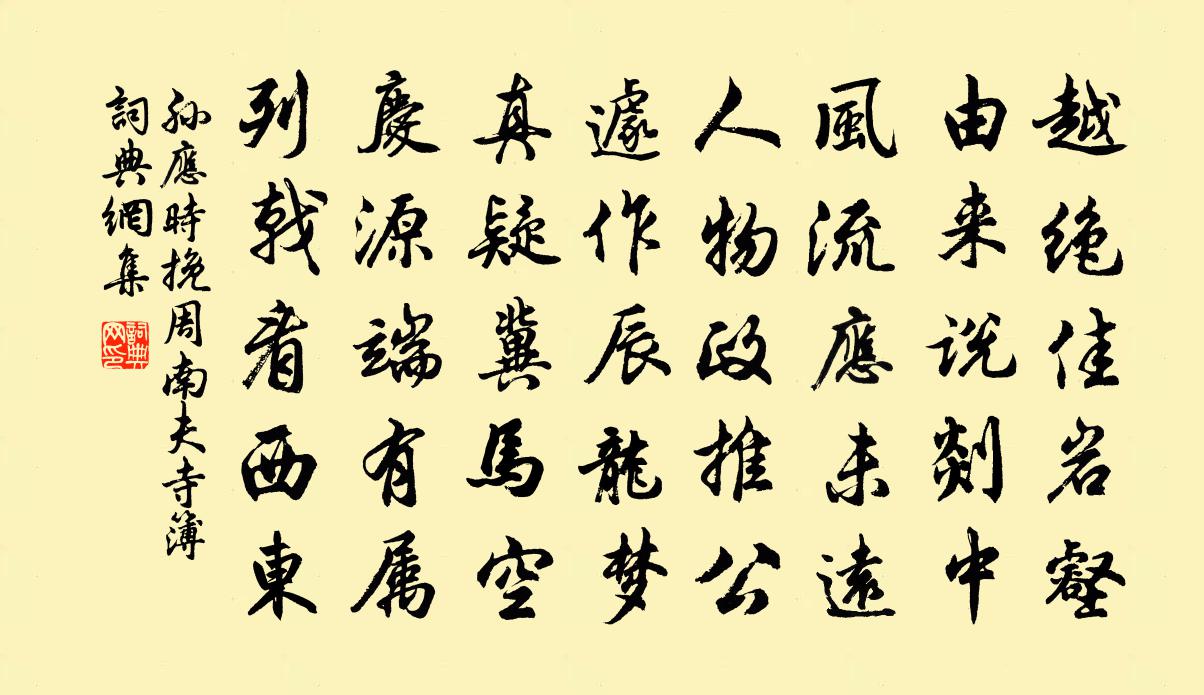 越绝佳岩壑
由来说剡中
風流應未遠
人物政推公
遽作辰龍梦
真疑冀馬空
慶源端有属
列戟看西東
孙應時挽周南夫寺簿
詞典網集
詞典网印